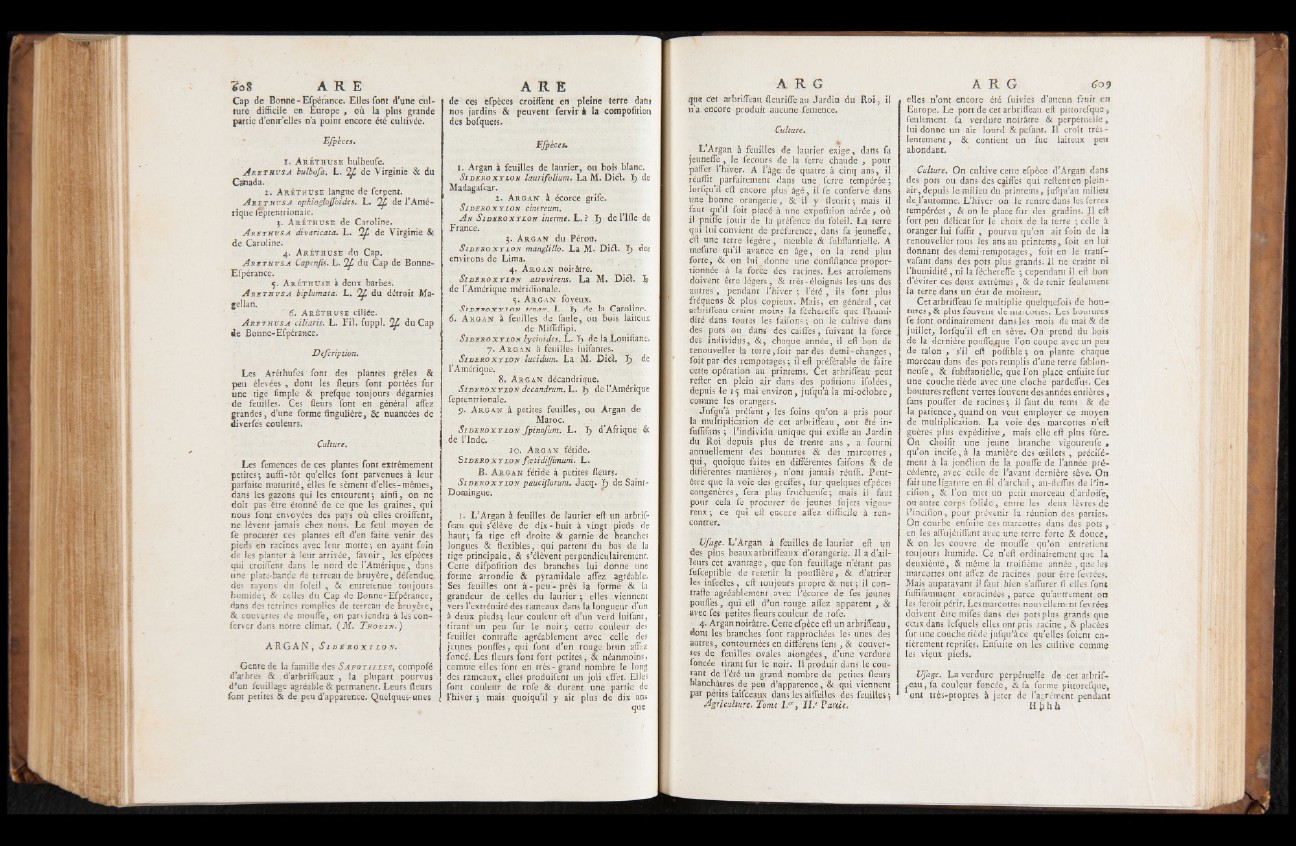 608 ARE
Cap de Bonne-Eſpérance. Elles ſont d'une cul-
ture difficile en Europe, où la plus grande
partie d'entr'elles n'a point encore été cultivée.
Eſpèces.
1. ARÉTHUSE bulbeuſe.
ARETHUSA bulboſa. L. ♃ de Virginie & du
Canada.
2. ARÉTHUSE langue de ſerpent.
ARETHUSA ophiogloſſoides. L. ♃ de l'Amé-
rique ſeptentrionale.
3. ARÉTHUSE de Caroline.
ARETHUSA divaricata. L. ♃ de Virginie &
de Caroline.
4. ARÉTHUSE du Cap.
ARETHUSA Capenſis. L. ♃ du Cap de Bonne-
Eſpérance.
5. ARÉTHUSE à deux barbes.
ARETHUSA biplumata. L. ♃ du détroit Ma-
gellan.
6. ARÉTHUSE ciliée.
ARETHUSA ciliaris. L. Fil. ſuppl. ♃ du Cap
de Bonne-Eſpérance.
Deſcription.
Les Aréthuſes ſont des plantes grêles &
peu élevées, dont les fleurs ſont portées ſur
une tige ſimple & preſque toujours dégarnies
de feuilles. Ces fleurs ſont en général aſſez
grandes, d'une forme ſingulière, & nuancées de
diverſes couleurs.
Culture.
Les ſemences de ces plantes ſont extrêmement
petites; auſſi-tôt qu'elles ſont parvenues à leur
parfaite maturité, elles ſe sèment d'elles-mêmes,
dans les gazons qui les entourent; ainſi, on ne
doit pas être étonné de ce que les graines, qui
nous ſont envoyées des pays où elles croiſſent,
ne lèvent jamais chez nous. Le ſeul moyen de
ſe procurer ces plantes eſt d'en faire venir des
pieds en racines avec leur motte; en ayant ſoin
de les planter à leur arrivée, ſavoir, les eſpèces
qui croiſſent dans le nord de l'Amérique, dans
une plate-bande de terreau de bruyère, défendue
des rayons du ſoleil, & entretenue toujours
humide; & celles du Cap de Bonne-Eſpérance,
dans des terrines remplies de terreau de bruyère,
& couvertes de mouſſe, on parviendra à les con-
ſerver dans notre climat. (M. THOUIN.)
ARGAN, SIDEROXYLON.
Genre de la famille des SAPOTILLES, compoſé
d'arbres & d'arbriſſeaux, la plupart pourvus
d'un feuillage agréable & permanent. Leurs fleurs
ſont petites & de peu d'apparence. Quelques-unes
ARE
de ces eſpèces croiſſent en pleine terre dans
nos jardins & peuvent ſervir à la compoſition
des boſquets.
Eſpèces.
1. Argan à feuilles de laurier, ou bois blanc.
SIDEROXYLON laurifolium. La M. Dict. ♄ de
Madagaſcar.
2. ARGAN à écorce griſe.
SIDEROXYLON cinereum.
AN SIDEROXYLON inerme. L.? ♄ de l'Iſle de
France.
3. ARGAN du Pérou.
SIDEROXYLON manglillo. La M. Dict. ♄ des
environs de Lima.
4. ARGAN noirâtre.
SIDEROXYLON atrovirens. La M. Dict. ♄
de l'Amérique méridionale.
5. ARGAN ſoyeux.
SIDEROXYLON tenax. L. ♄ de la Caroline.
6. ARGAN à feuilles de ſaule, ou bois laiteux
de Miſſiſſipi.
SIDEROXYLON lycioides. L. ♄ de la Louiſiane.
7. ARGAN à feuilles luiſantes.
SIDEROXYLON lucidum. La M. Dict. ♄ de
l'Amérique.
8. ARGAN décandrique.
SIDEROXYLON decandrum. L. ♄ de l'Amérique
ſeptentrionale.
9. ARGAN à petites feuilles, ou Argan de
Maroc.
SIDEROXYLON ſpinoſum. L. ♄ d'Afrique &
de l'Inde.
10. ARGAN fétide.
SIDEROXYLON fœtidiſſimum. L.
B. ARGAN fétide à petites fleurs.
SIDEROXYLON pauciflorum. Jacq. ♄ de Saint-
Domingue.
1. L'Argan à feuilles de laurier eſt un arbriſ-
ſeau qui s'élève de dix-huit à vingt pieds de
haut; ſa tige eſt droite & garnie de branches
longues & flexibles, qui partent du bas de la
tige principale, & s'élèvent perpendiculairement.
Cette diſpoſition des branches lui donne une
forme arrondie & pyramidale aſſez agréable.
Ses feuilles ont à-peu-près la forme & la
grandeur de celles du laurier; elles viennent
vers l'extrémité des rameaux dans la longueur d'un
à deux pieds; leur couleur eſt d'un verd luiſant,
tirant un peu ſur le noir; cette couleur des
feuilles contraſte agréablement avec celle des
jeunes pouſſes, qui ſont d'un rouge brun aſſez
foncé. Les fleurs ſont fort petites, & néanmoins,
comme elles ſont en très-grand nombre le long
des rameaux, elles produiſent un joli effet. Elles
ſont couleur de roſe & durent une partie de
l'hiver; mais quoiqu'il y ait plus de dix ans
que
ARG
que cet arbriſſeau fleuriſſe au Jardin du Roi, il
n'a encore produit aucune ſemence.
Culture.
L'Argan à feuilles de laurier exige, dans ſa
jeuneſſe, le ſecours de la ſerre chaude, pour
paſſer l'hiver. A l'âge de quatre à cinq ans, il
réuſſit parfaitement dans une ſerre tempérée;
lorſqu'il eſt encore plus âgé, il ſe conſerve dans
une bonne orangerie, & il y fleurit; mais il
faut qu'il ſoit placé à une expoſition aérée, où
il puiſſe jouir de la préſence du ſoleil. La terre
qui lui convient de préférence, dans ſa jeuneſſe,
eſt une terre légère, meuble & ſubſtantielle. A
meſure qu'il avance en âge, on la rend plus
forte, & on lui donne une conſiſtance propor-
tionnée à la force des racines. Les arroſemens
doivent être légers, & très-éloignés les uns des
autres, pendant l'hiver; l'été, ils ſont plus
fréquens & plus copieux. Mais, en général, cet
arbriſſeau craint moins la ſéchereſſe que l'humi-
dité dans toutes les ſaiſons; on le cultive dans
des pots ou dans des caiſſes, ſuivant la force
des individus, &, chaque année, il eſt bon de
renouveller la terre, ſoit par des demi-changes,
ſoit par des rempotages; il eſt préférable de faire
cette opération au printems. Cet arbriſſeau peut
reſter en plein air dans des poſitions iſolées,
depuis le 15 mai environ, juſqu'à la mi-octobre,
comme les orangers.
Juſqu'à préſent, les ſoins qu'on a pris pour
la multiplication de cet arbriſſeau, ont été in-
ſuffiſans; l'individu unique qui exiſte au Jardin
du Roi depuis plus de trente ans, a fourni
annuellement des boutures & des marcottes,
qui, quoique faites en différentes ſaiſons & de
différentes manières, n'ont jamais réuſſi. Peut-
être que la voie des greffes, ſur quelques eſpèces
congenères, ſera plus fructueuſe; mais il faut
pour cela ſe procurer de jeunes ſujets vigou-
reux; ce qui eſt encore aſſez difficile à ren-
contrer.
Uſage. L'Argan à feuilles de laurier eſt un
des plus beaux arbriſſeaux d'orangerie. Il a d'ail-
leurs cet avantage, que ſon feuillage n'étant pas
ſuſceptible de retenir la pouſſière, & d'attirer
les inſectes, eſt toujours propre & net; il con-
traſte agréablement avec l'écorce de ſes jeunes
pouſſes, qui eſt d'un rouge aſſez apparent, &
avec ſes petites fleurs couleur de roſe.
4. Argan noirâtre. Cette eſpèce eſt un arbriſſeau,
dont les branches ſont rapprochées les unes des
autres, contournées en différens ſens, & couver-
tes de feuilles ovales alongées, d'une verdure
foncée tirant ſur le noir. Il produit dans le cou-
rant de l'été un grand nombre de petites fleurs
blanchâtres de peu d'apparence, & qui viennent
par petits faiſceaux dans les aiſſelles des feuilles;
Agriculture. Tome I.er, II.e Partie.
ARG 609
elles n'ont encore été ſuivies d'aucun fruit en
Europe. Le port de cet arbriſſeau eſt pittoreſque,
ſeulement ſa verdure noirâtre & perpétuelle,
lui donne un air lourd & peſant. Il croît très-
lentement, & contient un ſuc laiteux peu
abondant.
Culture. On cultive cette eſpèce d'Argan dans
des pots ou dans des caiſſes qui reſtent en plein-
air, depuis le milieu du printems, juſqu'au milieu
de l'automne. L'hiver on le rentre dans les ſerres
tempérées, & on le place ſur des gradins. Il eſt
fort peu délicat ſur le choix de la terre; celle à
oranger lui ſuffit, pourvu qu'on ait ſoin de la
renouveller tous les ans au printems, ſoit en lui
donnant des demi-rempotages, ſoit en le tranſ-
vaſant dans des pots plus grands. Il ne craint ni
l'humidité, ni la ſéchereſſe; cependant il eſt bon
d'éviter ces deux extrêmes, & de tenir ſeulement
la terre dans un état de moiteur.
Cet arbriſſeau ſe multiplie quelquefois de bou-
tures, & plus ſouvent de marcottes. Les boutures
ſe font ordinairement dans les mois de mai & de
juillet, lorſqu'il eſt en sève. On prend du bois
de la dernière pouſſe que l'on coupe avec un peu
de talon, s'il eſt poſſible; on plante chaque
morceau dans des pots remplis d'une terre ſablon-
neuſe, & ſubſtantielle, que l'on place enſuite ſur
une couche tiède avec une cloche pardeſſus. Ces
boutures reſtent vertes ſouvent des années entières,
ſans pouſſer de racines; il faut du tems & de
la patience, quand on veut employer ce moyen
de multiplication. La voie des marcottes n'eſt
guères plus expéditive, mais elle eſt plus ſûre.
On choiſit une jeune branche vigoureuſe,
qu'on inciſe, à la manière des œillets, préciſé-
ment à la jonction de la pouſſe de l'année pré-
cédente, avec celle de l'avant dernière sève. On
fait une ligature en fil d'archal, au-deſſus de l'in-
ciſion, & l'on met un petit morceau d'ardoiſe,
ou autre corps ſolide, entre les deux lèvres de
l'inciſion, pour prévenir la réunion des parties.
On courbe enſuite ces marcottes dans des pots,
en les aſſujétiſſant avec une terre forte & douce,
& on les couvre de mouſſe qu'on entretient
toujours humide. Ce n'eſt ordinairement que la
deuxième, & même la troiſième année, que les
marcottes ont aſſez de racines pour être ſevrées.
Mais auparavant il faut bien s'aſſurer ſi elles ſont
ſuffiſamment enracinées, parce qu'autrement on
les feroit périr. Les marcottes nouvellement ſevrées
doivent être miſes dans des pots plus grands que
ceux dans leſquels elles ont pris racine, & placées
ſur une couche tiède juſqu'à ce qu'elles ſoient en-
tièrement repriſes. Enſuite on les cultive comme
les vieux pieds.
Uſage. La verdure perpétuelle de cet arbriſ-
ſeau, ſa couleur foncée, & ſa forme pittoreſque,
ſont très-propres à jeter de l'agrément pendant
Hhhh